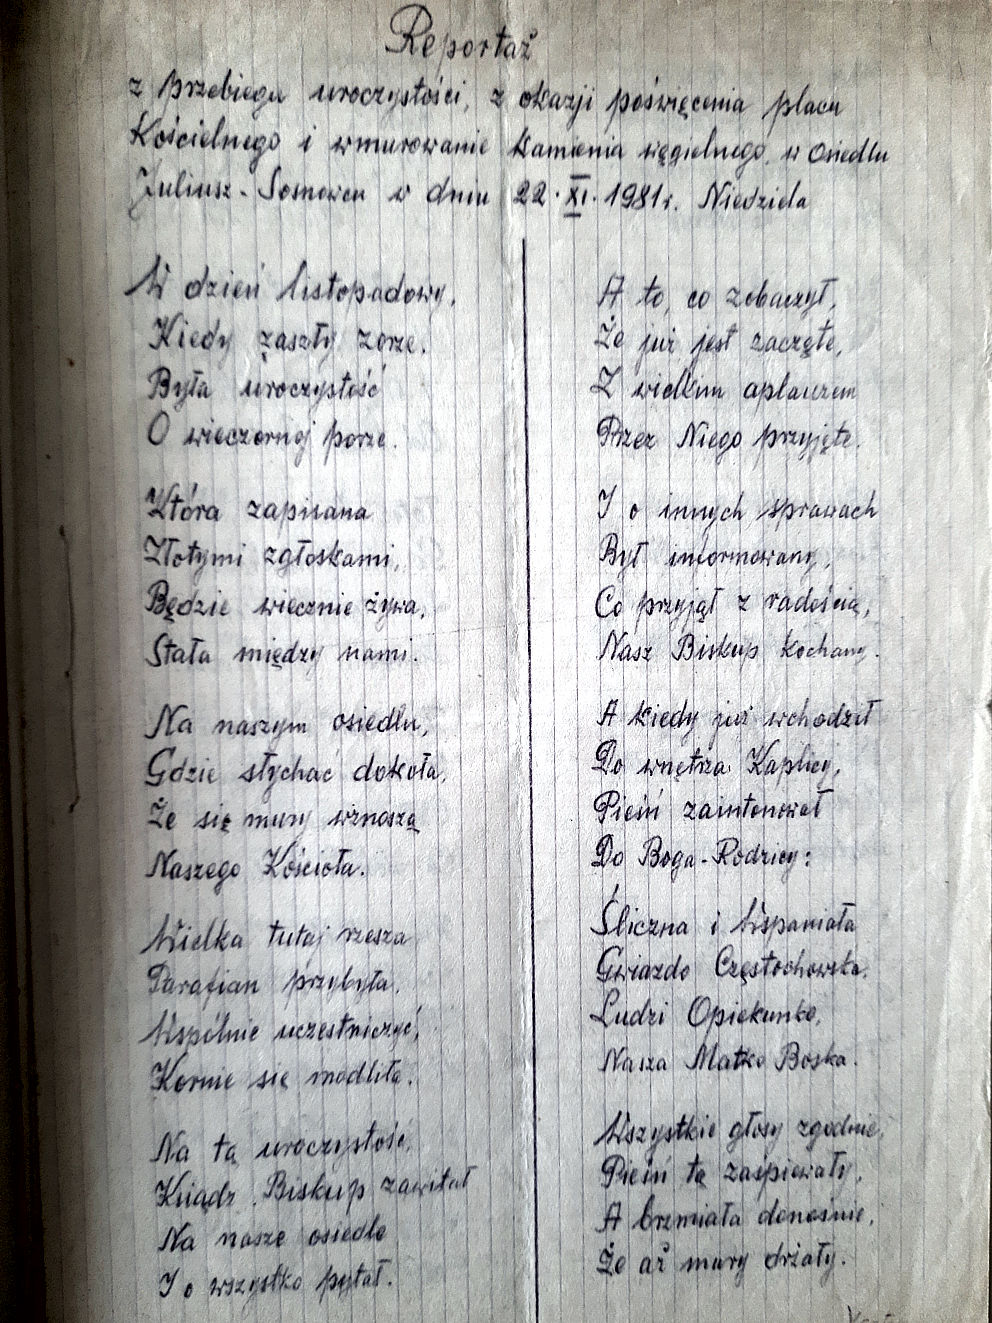 Reportaż
z przebiegu uroczystości, z okazji poświęcenia placu
Kościelnego i wmurowanie kamienia węgielnego, w osiedlu
Juliusz-Sosnowcu w dniu 22.XI.1981r. Niedziela
W dzień listopadowy,
Kiedy zaszły zorze.
Była uroczystość
O wieczornej porze.
Która zapisana
Złotymi zgłoskami,
Będzie wiecznie żywa,
Stała między nami.
Na naszym osiedlu,
Gdzie słychać dokoła,
Że się mury wznoszą
Naszego Kościoła.
Wielka tutaj rzesza
Parafian przybyła,
Wspólnie uczestniczyć,
Kornie się modliła.
Na tą uroczystość,
Ksiądz Biskup zawitał
Na nasze osiedle
I o wszystko pytał.
A to, co zobaczył,
Że już jest zaczęte,
Z wielkim aplauzem
Przez Niego przyjęte.
I o innych sprawach
Był informowany,
Co przyjął z radością,
Nasz Biskup kochany.
A kiedy już wchodził
Do wnętrza Kaplicy,
Pieśń zaintonował
Do Boga-Rodzicy:
Śliczna i Wspaniała
Gwiazdo Częstochowska,
Ludzi Opiekunko,
Nasza Matko Boska.
Wszystkie głosy zgodnie,
Pieśń tą zaśpiewały,
A brzmiała donośnie,
Że aż mury drżały.